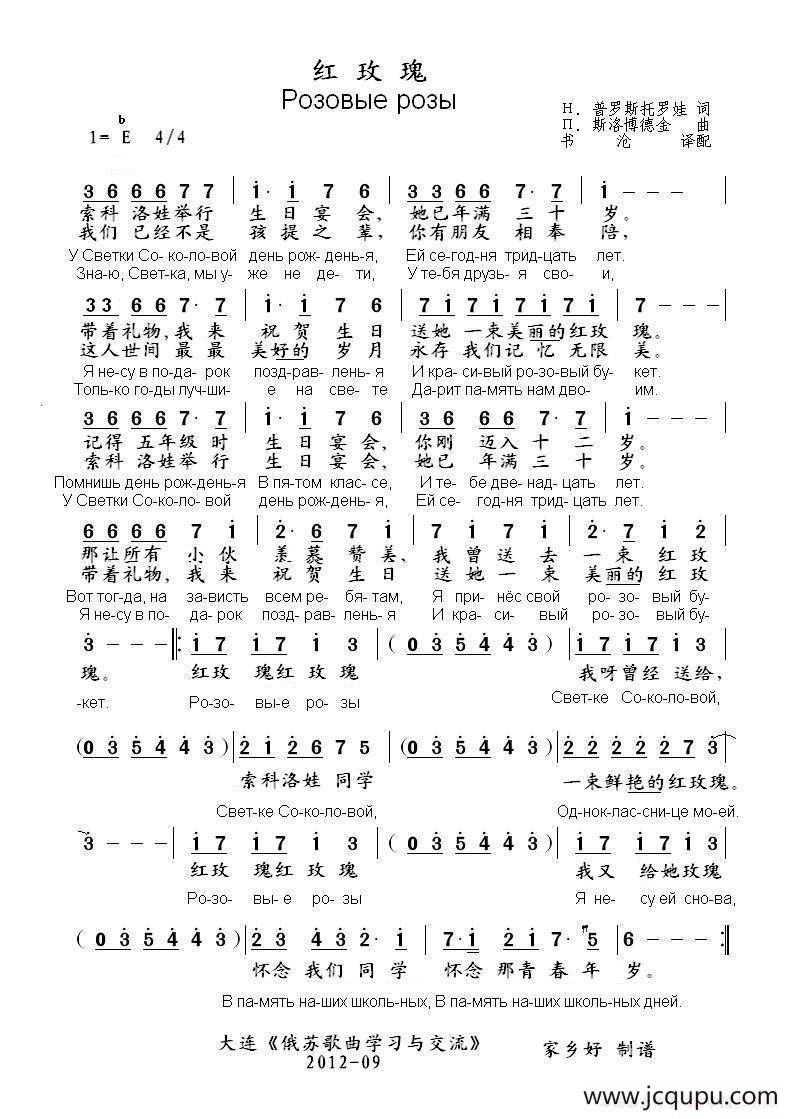 红 玫 瑰
Розовые розы
1= ᵇE 4/4
Н. 普罗斯托罗娃 词
П. 斯洛博德金 曲
书 沧 译配
3 6 6 6 7 7 | i· i 7 6 | 3 3 6 6 7· 7 | i - - - |
索科 洛娃举行 生 日 宴 会, 她已年满 三 十 岁。
我们 已经不是 孩 提 之 辈, 你有朋友 相 奉 陪,
У Светки Со- ко-ло-вой день рож- день-я, Ей се-год-ня трид-цать лет.
Зна-ю, Свет-ка, мы у- же не де- ти, У те-бя друзь- я сво- и,
3 3 6 6 7· 7 | i· i 7 6 | 7 i 7 i 7 i 7 i | 7 - - - |
带着礼物,我来 祝 贺 生 日 送她 一束美丽的红玫 瑰。
这人世间 最最 美好的 岁 月 永存 我们记 忆 无限 美。
Я не-су в по-да- рок позд-рав- лень-я И кра- си-вый ро-зо-вый бу- кет.
Толь-ко го-ды луч-ши- е на све- те Да-рит па-мять нам дво- им.
3 6 6 6 7 7 | i· i 7 6 | 3 6 6 6 7· 7 | i - - - |
记得 五年级 时 生 日 宴 会, 你刚 迈入 十 二 岁。
索科 洛娃举行 生 日 宴 会, 她已 年满 三 十 岁。
Помнишь день рож-день-я В пя-том клас- се, И те- бе две-над- цать лет.
У Светки Со-ко-ло- вой день рож-день-я, Ей се- год-ня трид-цать лет.
6 6 6 6 7 i | 2· 6 7 i | 7 i 7 i 7 i 2 |
那让所有 小 伙 羡 慕 赞 美, 我 曾 送 去 一 束 红 玫
带着礼物,我 来 祝 贺 生 日 送 她 一 束 美丽的 红 玫
Вот тог-да, на за-висть всем ре- бя-там, Я при- нёс свой ро- зо- вый бу-
Я не-су в по- да-рок позд- рав-лень-я И кра- си- вый ро- зо- вый бу-
3 - - - ‖: i 7 i 7 i 3 | ( 0 3 5 4 4 3 ) | i 7 i 7 i 3 |
瑰。 红玫 瑰红 玫 瑰 我呀曾经 送给,
-кет. Ро-зо- вы-е ро- зы Свет-ке Со-ко-ло-вой,
(0 3 5 4 4 3) | 2 i 2 6 7 5 | (0 3 5 4 4 3) | 2 2 2 2 2 7 3 |
索科洛娃 同学 一束鲜艳的红玫瑰。
Свет-ке Со-ко-ло-вой, Од-нок-лас-сни-це мо-ей.
3 - - - | i 7 i 7 i 3 | ( 0 3 5 4 4 3 ) | i 7 i 7 i 3 |
红玫 瑰红 玫 瑰 我又 给她玫瑰
Ро-зо- вы- е ро- зы Я не- су ей сно-ва,
( 0 3 5 4 4 3 ) | 2 3 4 3 2· i | 7· i 2 i 7· 5 | 6 - - - :‖
怀念 我们 同 学 怀念 那青 春 年 岁。
В па-мять на-ших школь-ных, В па-мять на-ших школь-ных дней.
大连《俄苏歌曲学习与交流》
2012-09
家乡好 制谱
www.jcqupu.com